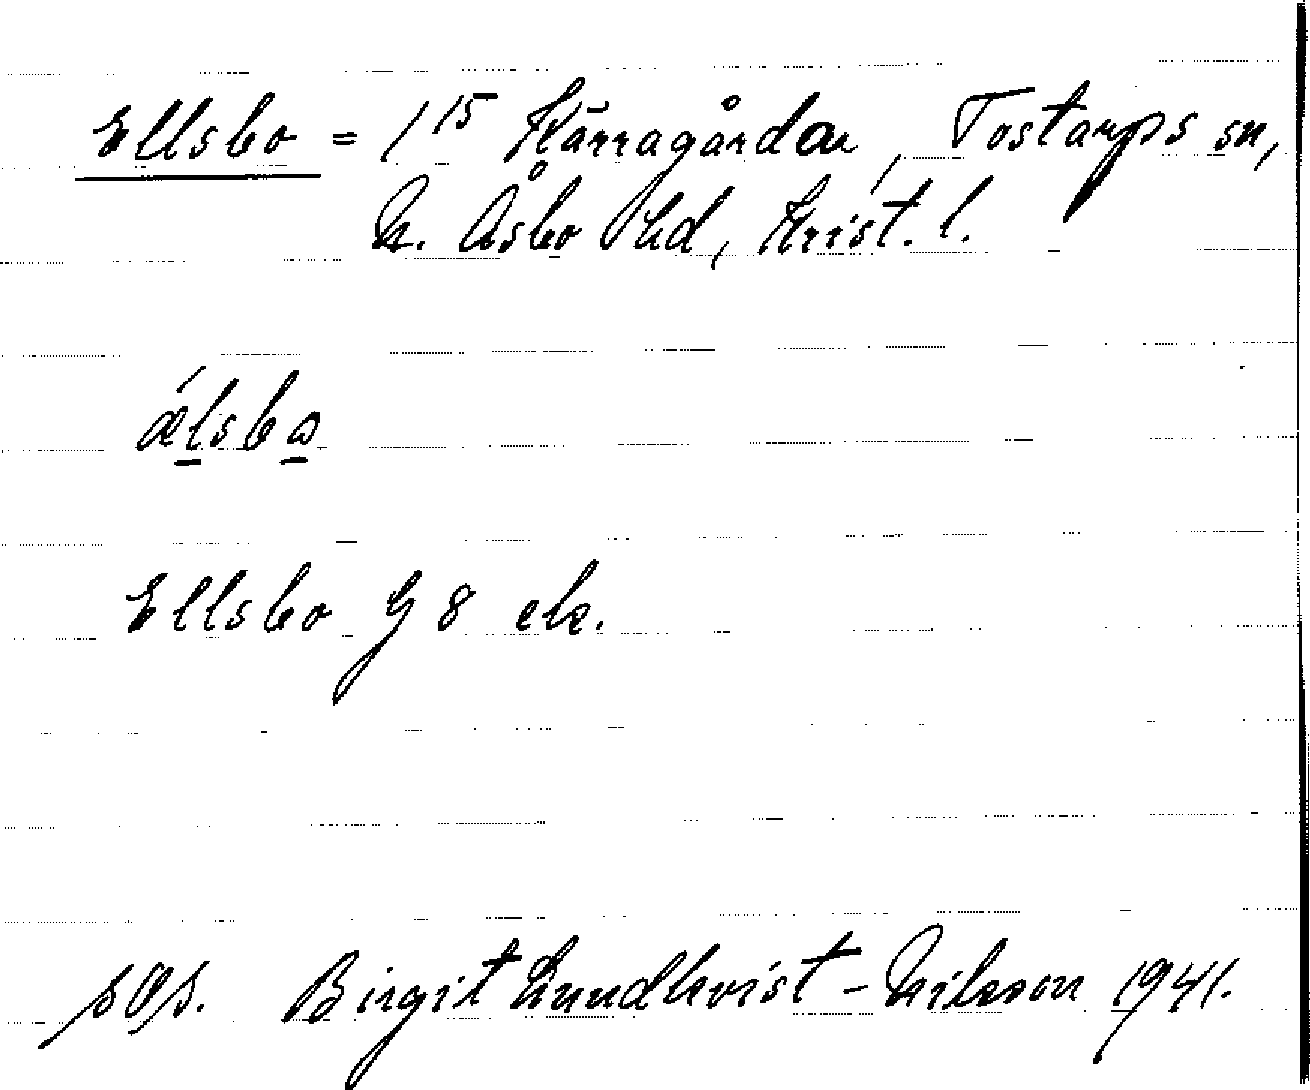 Ellsbo = 1¹⁵ Kärragården, Tostarps sn,
N. Åsbo hd, Krist. l.
ǽlsbω
Ellsbo G 8 ek.
Birgit Lundkvist-Nilsson 1941.